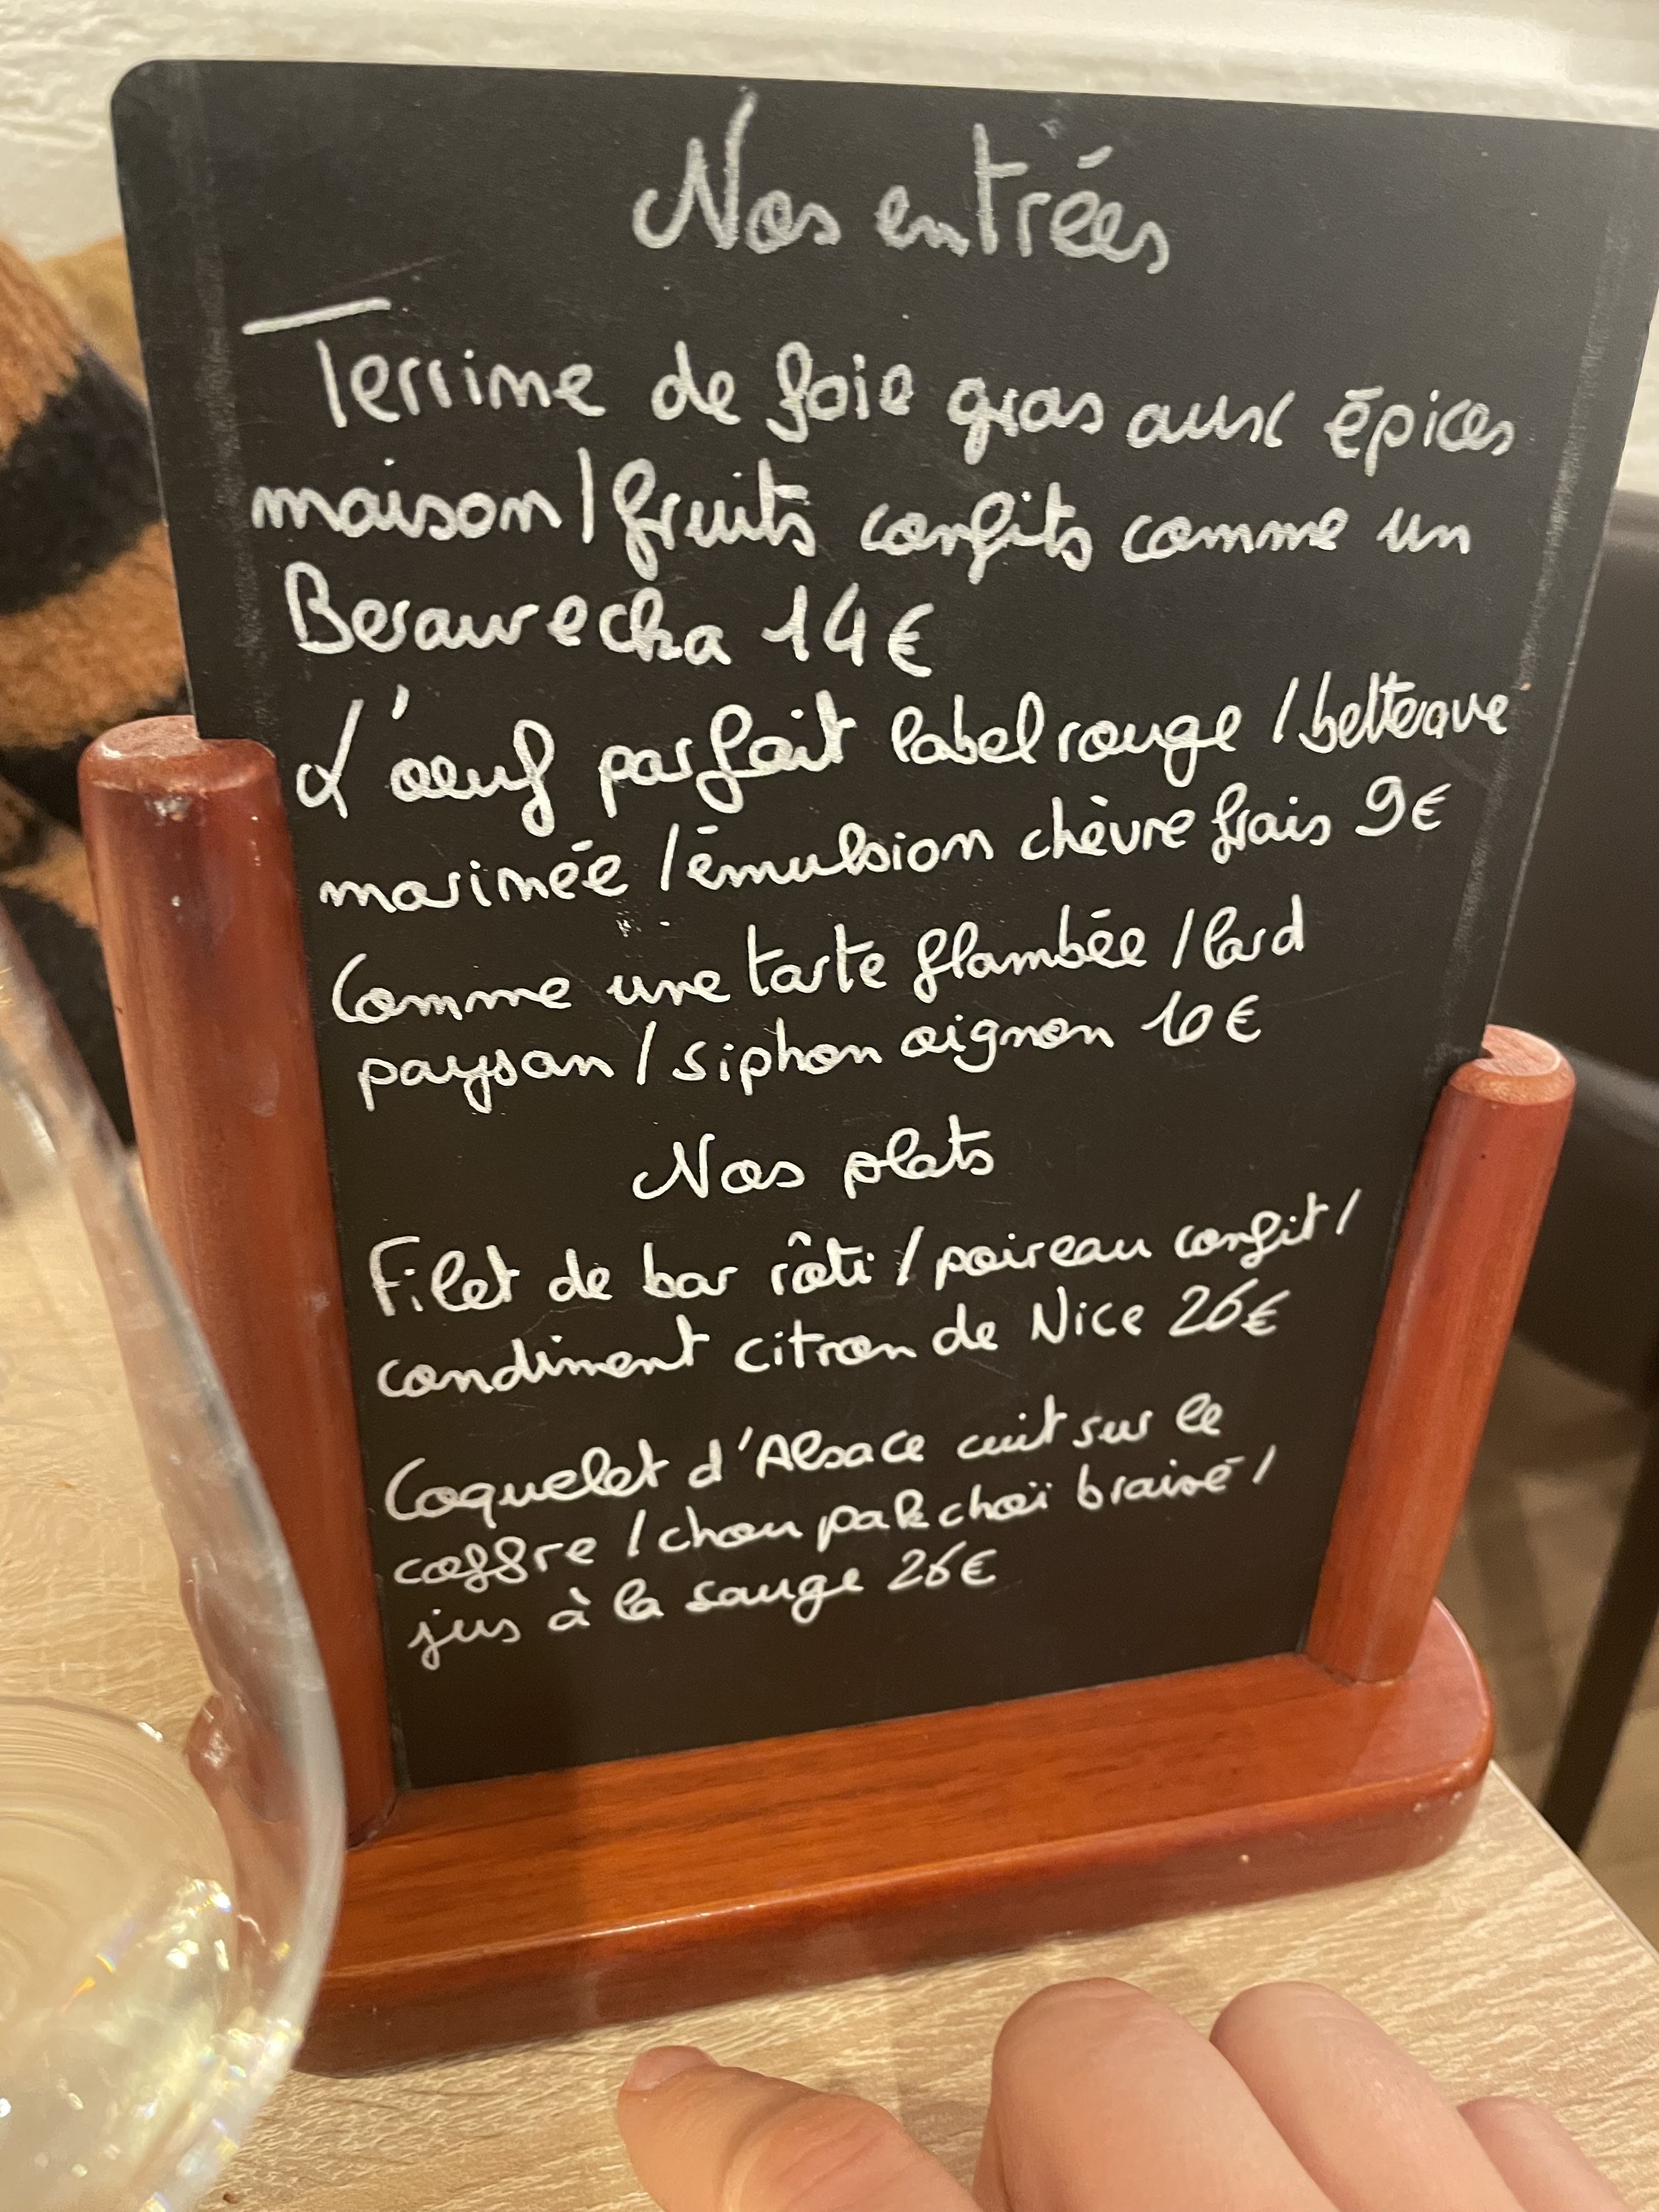 Nos entrées
Terrine de foie gras aux épices
maison / fruits confits comme un
Berawecka 14€
L'oeuf parfait label rouge / betterave
marinée / émulsion chèvre frais 9€
Comme une tarte flambée / lard
paysan / siphon oignon 10€
Nos plats
Filet de bar rôti / poireau confit /
condiment citron de Nice 26€
Coquelet d'Alsace cuit sur le
coffre / chou pak choï braisé /
jus à la sauge 26€